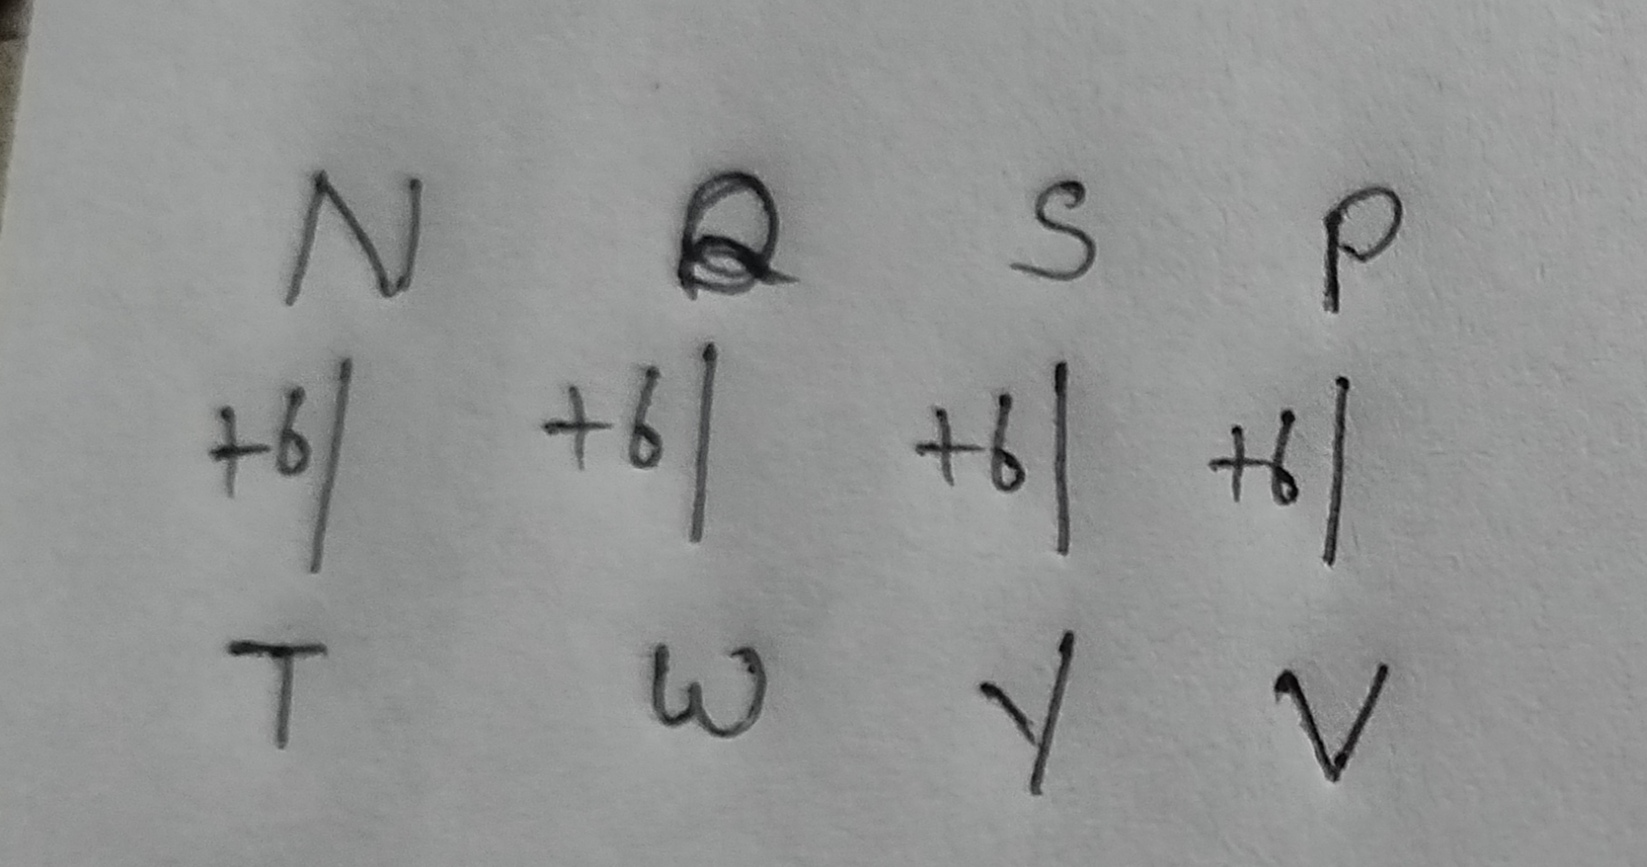 N Q S P
+6| +6| +6| +6|
T W Y V